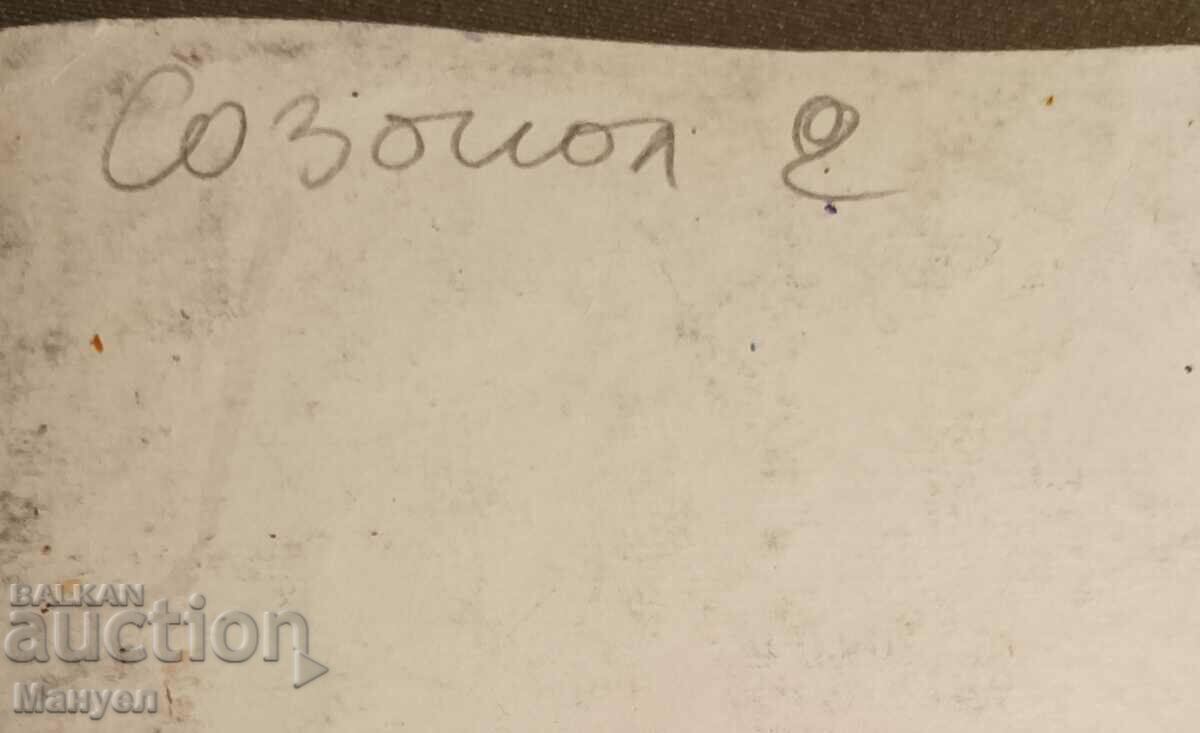 Созопол 2
BALKAN
auction
Мануел